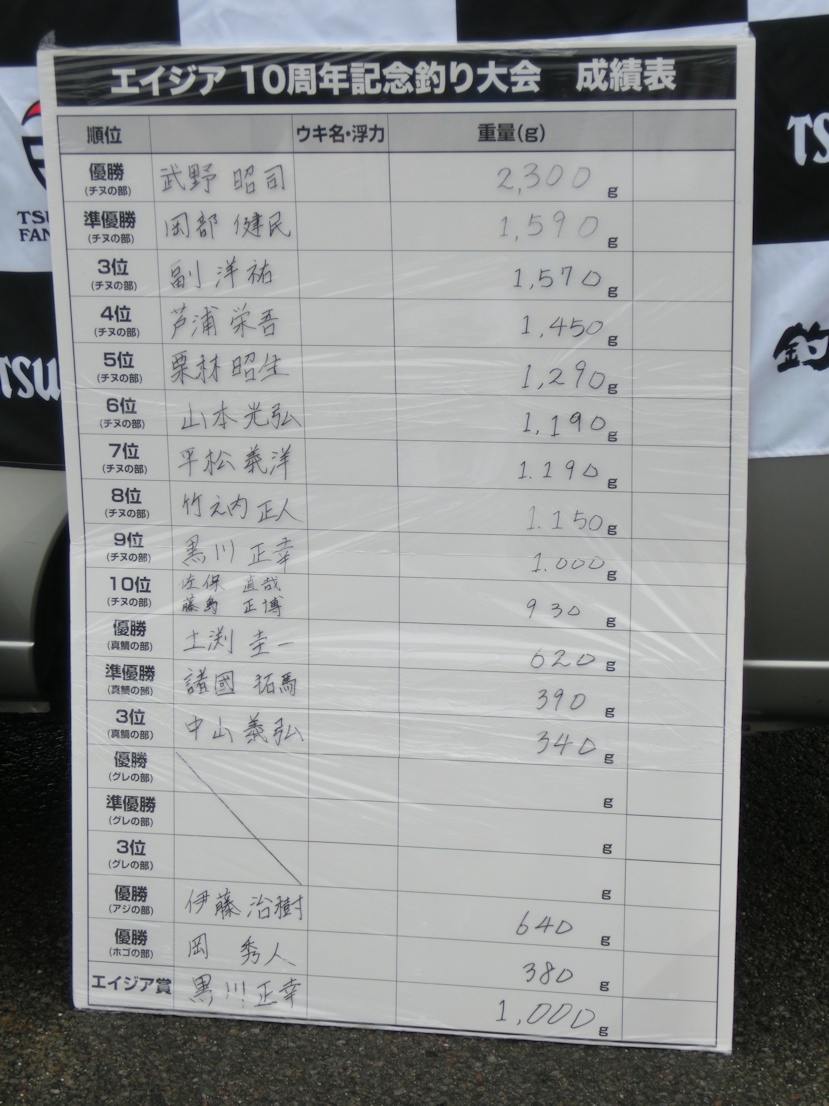 エイジア 10周年記念釣り大会 成績表
順位 ウキ名・浮力 重量(g)
優勝 (チヌの部) 武野 昭司 2,300 g
準優勝 (チヌの部) 岡部 健民 1,590 g
3位 (チヌの部) 副 洋祐 1,570 g
4位 (チヌの部) 芦浦 栄吾 1,450 g
5位 (チヌの部) 栗林 昭生 1,290 g
6位 (チヌの部) 山本 光弘 1,190 g
7位 (チヌの部) 平松 義洋 1.190 g
8位 (チヌの部) 竹之内 正人 1.150 g
9位 (チヌの部) 黒川 正幸 1.000 g
10位 (チヌの部) 佐保 直哉 930 g
藤島 正博
優勝 (真鯛の部) 土渕 圭一 620 g
準優勝 (真鯛の部) 諸國 拓馬 390 g
3位 (真鯛の部) 中山 義弘 340 g
優勝 (グレの部) g
準優勝 (グレの部) g
3位 (グレの部) g
優勝 (アジの部) 伊藤 治樹 640 g
優勝 (ホゴの部) 岡 秀人 380 g
エイジア賞 黒川 正幸 1,000 g